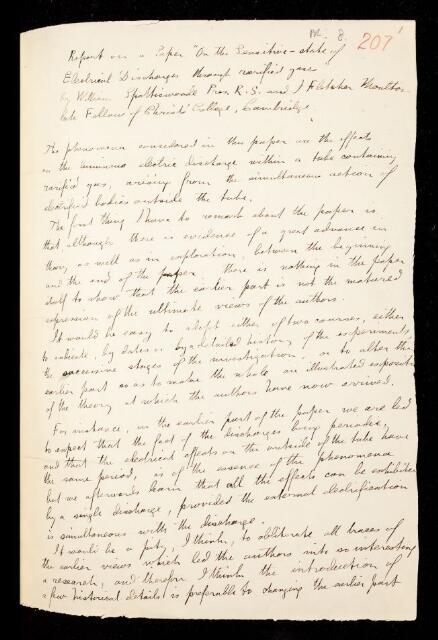 M. 8. 207 1
Report on a Paper "On the Sensitive-state of
Electrical Discharges through rarified gases
by William Spottiswoode Pres R.S. and J Fletcher Moulton
late Fellow of Christ's College, Cambridge.
The phenomena considered in this paper are the effects
on the luminous electric discharge within a tube containing
rarified gas, arising from the simultaneous action of
electrified bodies outside the tube.
The first thing I have to remark about the paper is
that although there is evidence of a great advance in
theory, as well as in exploration, between the beginning
and the end of the paper there is nothing in the paper
itself to show that the earlier part is not the matured
expression of the ultimate views of the authors.
It would be easy to adopt either of two courses, either
to indicate, by dates or by a detailed history of the experiments,
the successive stages of the investigation, or to alter the
earlier part so as to make the whole an illustrated exposition
of the theory at which the authors have now arrived.
For instance, in the earlier part of the paper we are led
to suspect that the fact of the discharges being periodic,
and that the electrical effects on the outside of the tube have
the same period, is of the essence of the phenomena
but we afterwards learn that all the effects can be exhibited
by a single discharge, provided the external electrification
is simultaneous with the discharge.
It would be a pity, I think, to obliterate all traces of
the earlier views which led the authors into so interesting
a research, and therefore I think the introduction of
a few historical details is preferable to changing the earlier part